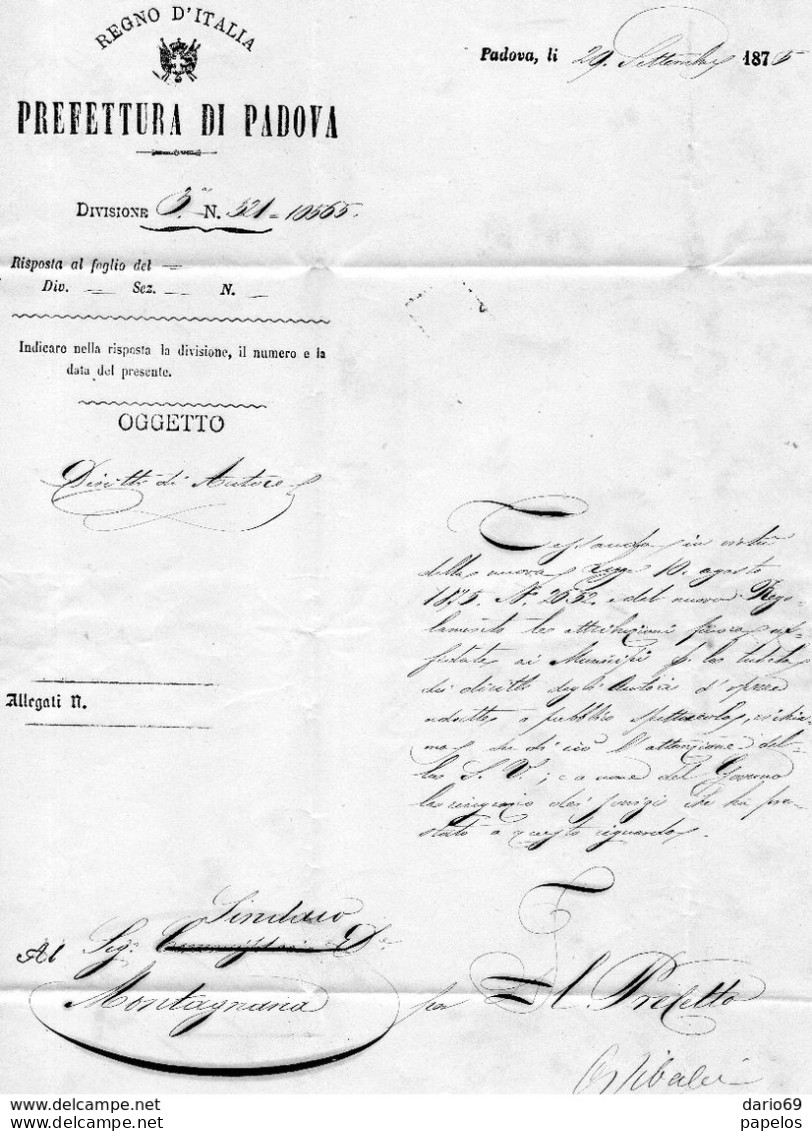 REGNO D'ITALIA
PREFETTURA DI PADOVA
Padova, li 29 Settembre 1875
DIVISIONE 3.ª N. 521 = 10565.
Risposta al foglio del
Div. Sez. N.
Indicare nella risposta la divisione, il numero e la
data del presente.
OGGETTO
Diritti di Autore
Cessando in virtù
della nuova Legge 10. agosto
1875. Nº 2652. e del nuovo Rego-
lamento le attribuzioni finora
ai Municipj p. la tutela
dei diritti degli Autori d'opere
addotte a pubblico spettacolo, richia-
mo su di ciò l'attenzione del-
la S. V.; e a nome del Governo
la ringrazio dei servigi che ha pre-
stato a questo riguardo.
Allegati N.
Sindaco
Al Sig. Di
Montagnana
per Il Prefetto
dario69
papelos